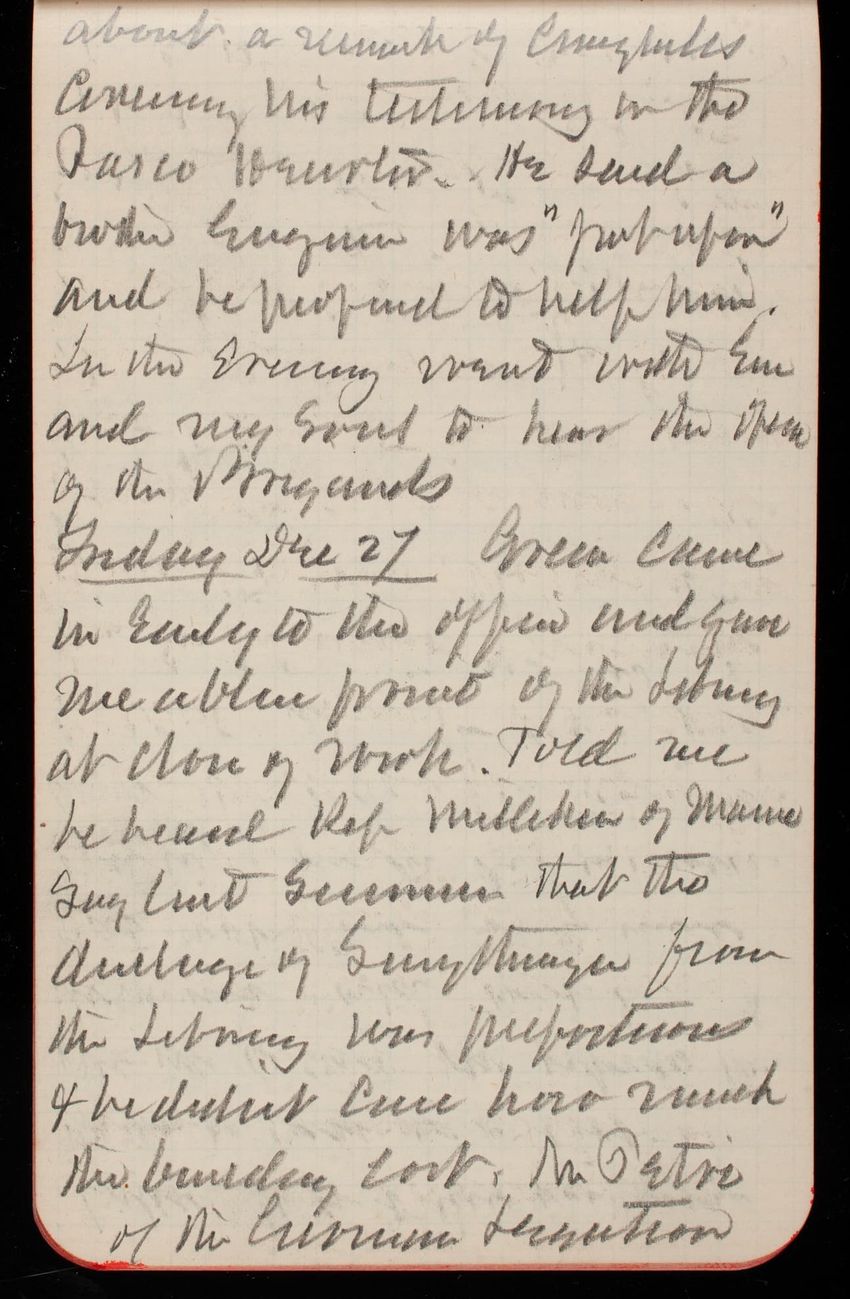 about a remark of Casey while
Concerning his testimony in the
He said a
brother Engineer was "put upon"
and he proposed to help him.
In the Evening went with Em
and my Aunt to hear the Opera
of the Brigands
Friday Dec 27 Green Came
in Early to the office and gave
me a blue print of the Library
at close of work. Told me
he heard Rep Milliken of Maine
Say last Summer that the
discharge of Smithmeyer from
the Library was preposterous
& he didnt Care how much
the building cost. Mr Petri
of the German Legation